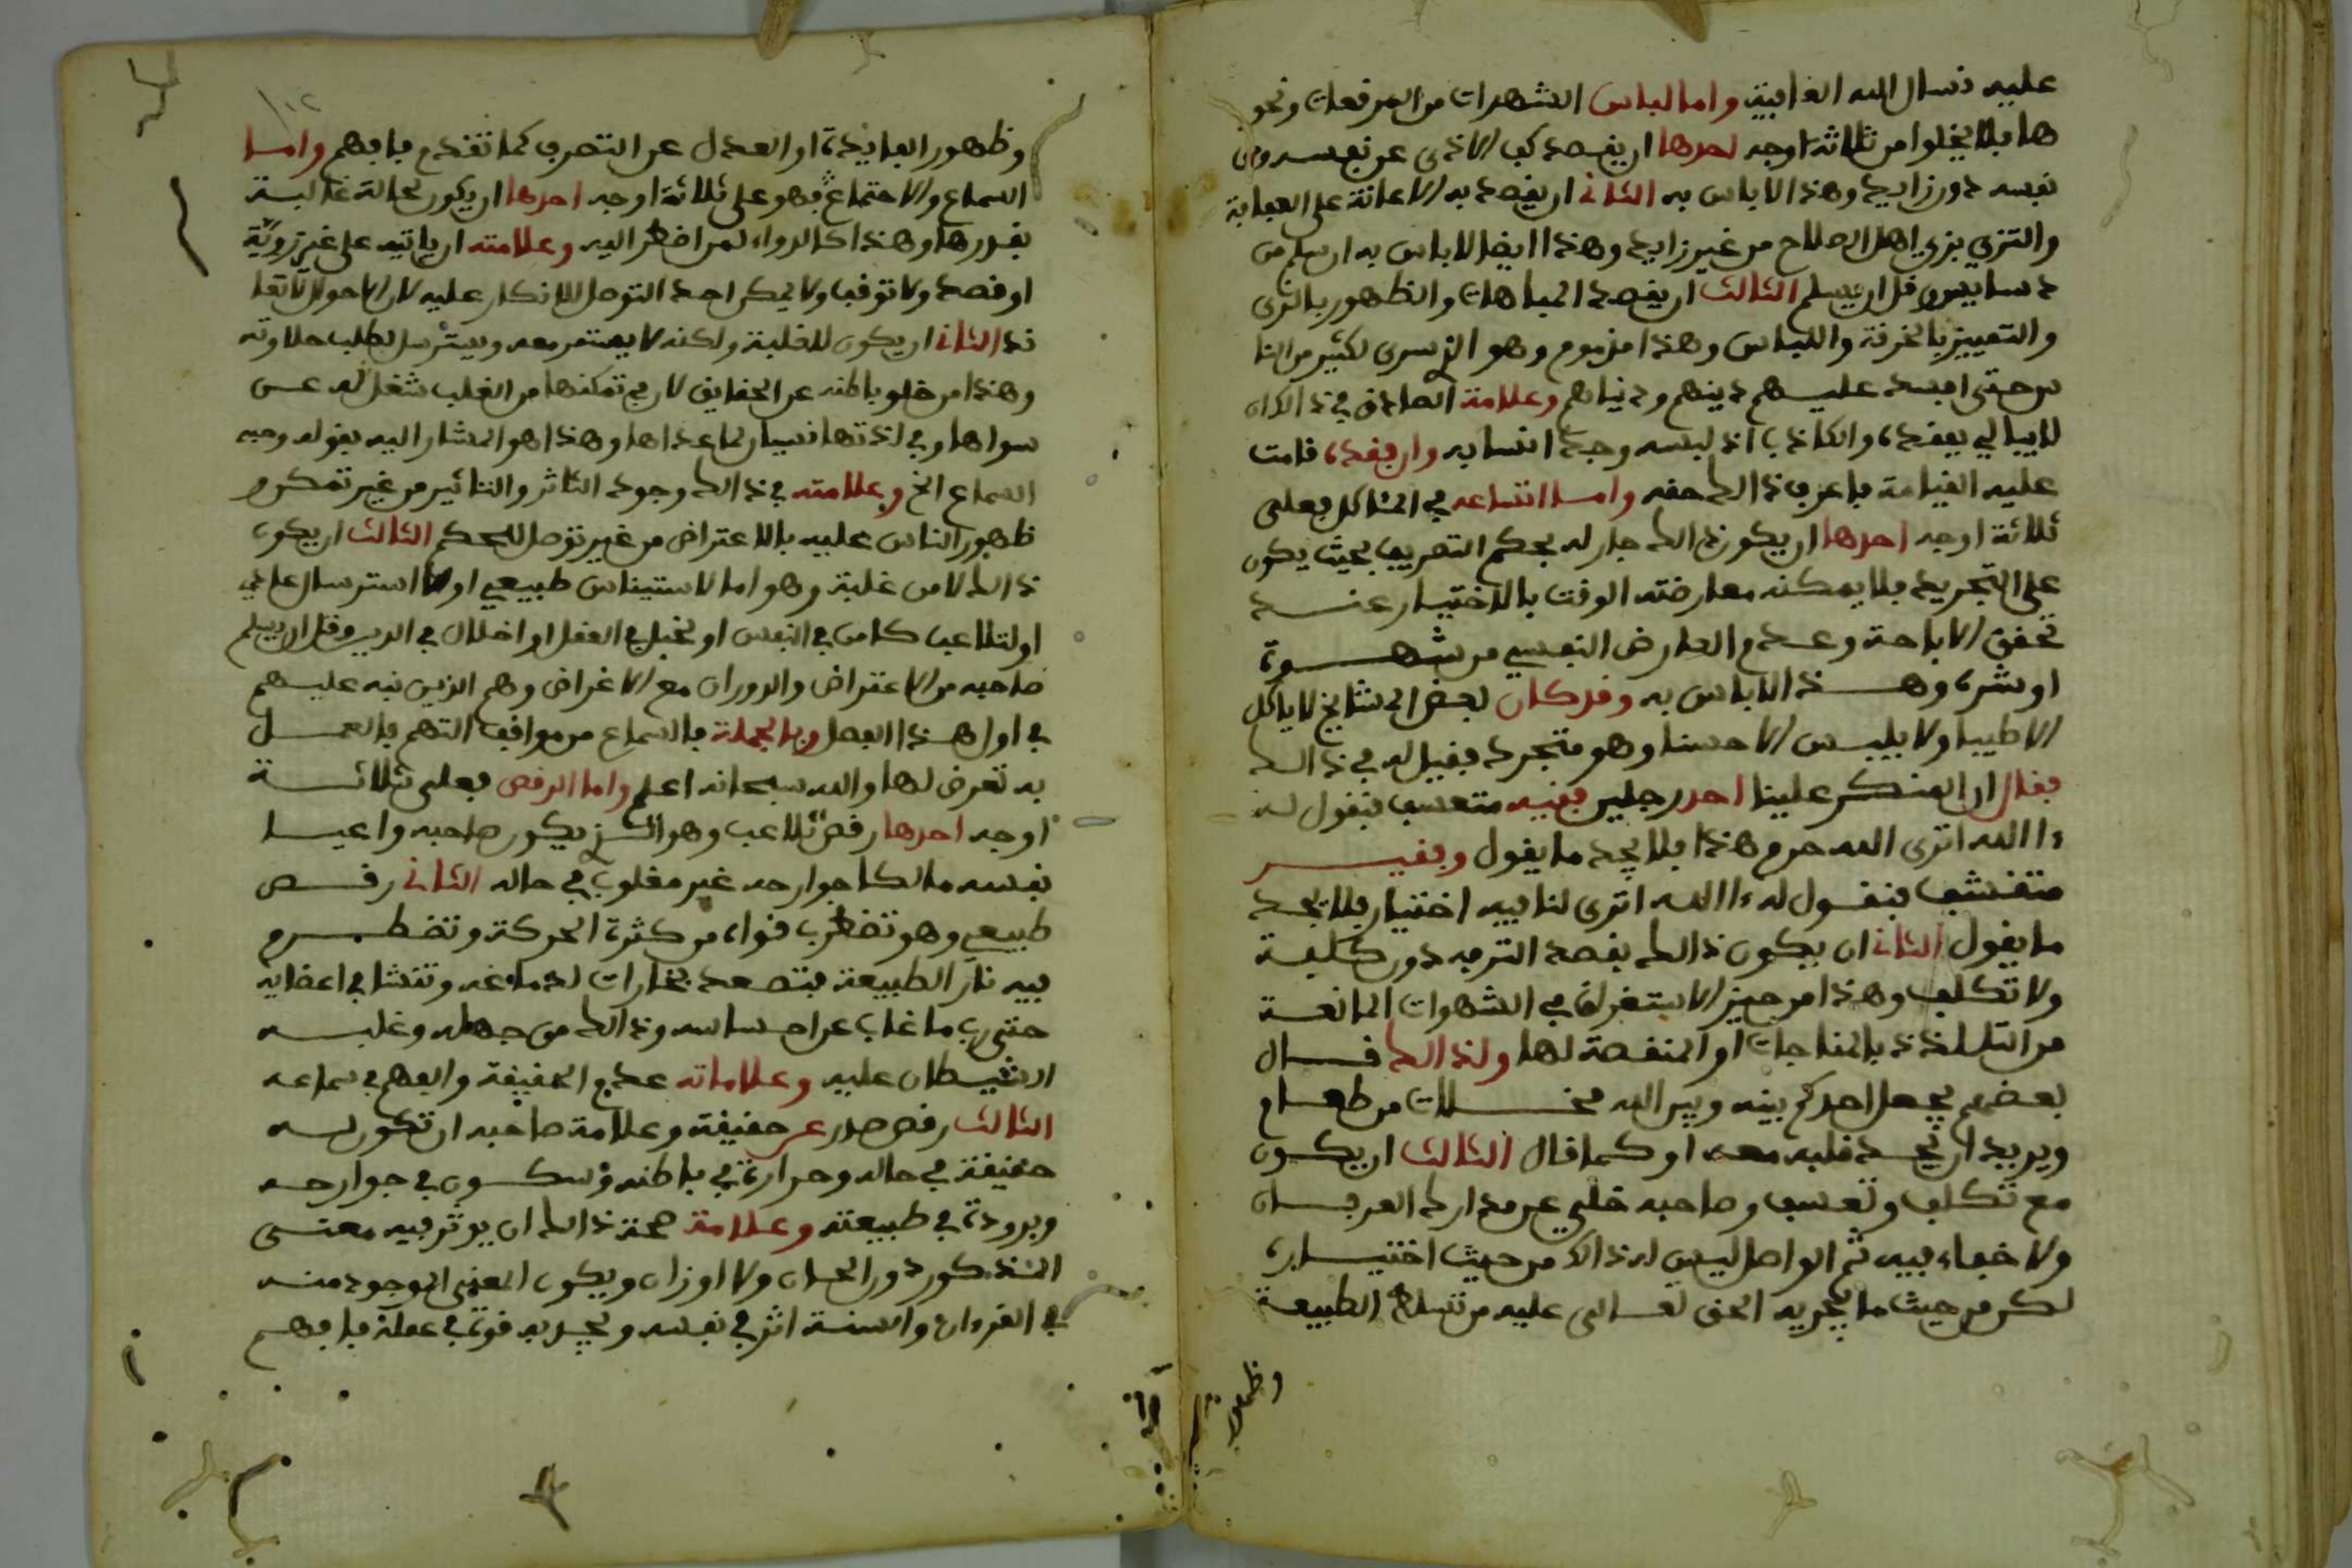 عليه نسال الله العافية واما لباس الشهرات من المرقعات ونحو
ها فلا يخلوا من ثلاثة اوجه احدها ان يقصد كف الاذى عن نفسه ومن
نفسه دون زايد وهذا لا باس به الثاني ان يقصد به الاعانة على العبادة
والتزي بزي اهل الصلاح من غير زايد وهذا ايضا لا باس به ان سلم من
دسايس وقل ان يسلم الثالث ان يقصد المباهات والظهور بالزي
والتمييز بالخرقة واللباس وهذا مذموم وهو الذي سرى لكثير من النا
س حتى افسد عليهم دينهم ودنياهم وعلامة الصادق في ذالك ان
لا يبالي بفقده والكاذب اذا لبسه وجد انسا به وان فقده قامت
عليه القيامة فاعرف ذالك حقه واما اتساعه في المئاكل فعلى
ثلاثة اوجه احدها ان يكون ذالك جار له بحكم التصريف بحيث يكون
على التجريد فلا يمكنه معارضته الوقت بالاختيار عند
تحقق الاباحة وعدم العارض النفسي من شهوة
او شره وهذا لا باس به وقد كان بعض المشايخ لا ياكل
الا طيبا ولا يلبس الا حسنا وهو متجرد فقيل له في ذالك
فقال ان المنكر علينا احد رجلين فقيه متعسف فنقول له
ءا الله اترى الله حرم هذا فلا يجد ما يقول وفقير
متقشف فنقول له ءا الله اترى لنا فيه اختيار فلا يجد
ما يقول الثاني ان يكون ذالك بقصد الترفه دون كلفة
ولا تكلف وهذا من حيز الاستغراق في الشهوات المانعة
من التلذذ بالمناجات او المنقصة لها ولذالك قال
بعضهم يجعل احدكم بينه وبين الله مخلات من طعام
ويريد ان يجد قلبه معه او كما قال الثالث ان يكون
مع تكلف وتعسف وصاحبه خلي عن مدارك العرفان
ولا خفاء فيه ثم الواصل ليس له ذالك من حيث اختياره
لكن من حيث ما يجريه الحق تعالى عليه من تسلط الطبيعة
وظهور
وظهور الفايدة او العدل عن التصرف كما تقدم فافهم واما
السماع والاجتماع فهو على ثلاثة اوجه احدها ان يكون لحالة غالبة
بقدرها وهذا كالدواء لمن اضطر اليه وعلامته ان ياتيه على غير روية
او قصد ولا توقف ولا يمكن احد التوصل للانكار عليه لان الاحوال لا تقا
ذ الثاني ان يكون للغلبة ولكنه لا يعتقر معه ويسترسل بطلب حلاوته
وهذا من خلو باطنه عن الحقايق لان في تمكنها من القلب شغل له عن
سواها وفي لذتها نسيان لما عداها وهذا هو المشار اليه بقوله وفيه
السماع الخ وعلامته في ذالك وجود التاثر والتاثير من غير تمكن و
ظهور الناس عليه بالاعتراض من غير توصل للحكم الثالث ان يكون
ذالك لا من غلبة وهو اما لاستيناس طبيعي او لاسترسال عادي
او لتلاعب كامن في النفس او لخبل في العقل او اخلال في الدين وقل ان يسلم
صاحبه من الاعتراض والدوران مع الاغراض وهم الذين نبه عليهم
في اول هذا الفصل وبالجملة فالسماع من مواقف التهم فالعمل
به تعرض لها والله سبحانه اعلم واما الرقص فعلى ثلاثة
اوجه احدها رقص تلاعب وهو الذي يكون صاحبه واعيا
بنفسه مالكا جوارحه غير مغلوب في حاله الثاني رقص
طبيعي وهو تضطرب قواه من كثرة الحركة وتضطرم
فيه نار الطبيعة فتصعد بخارات لدماغه وتنشا في اعضايه
حتى رب ما غاب عن احساسه وذالك من جهله وغلبة
الشيطان عليه وعلاماته عدم الحقيقة والفهم في سماعه
الثالث رقص صدر عن حقيقة وعلامة صاحبه ان تكون له
حقيقة في حاله وحرارة في باطنه وسكون في جوارحه
وبرودة في طبيعته وعلامة صحة ذالك ان يوثر فيه معنى
المذكور دون الحان ولا اوزان ويكون المعنى الموجود منه
في القرءان والسنة اثر في نفسه ويجد به قوة في عمله فافهم